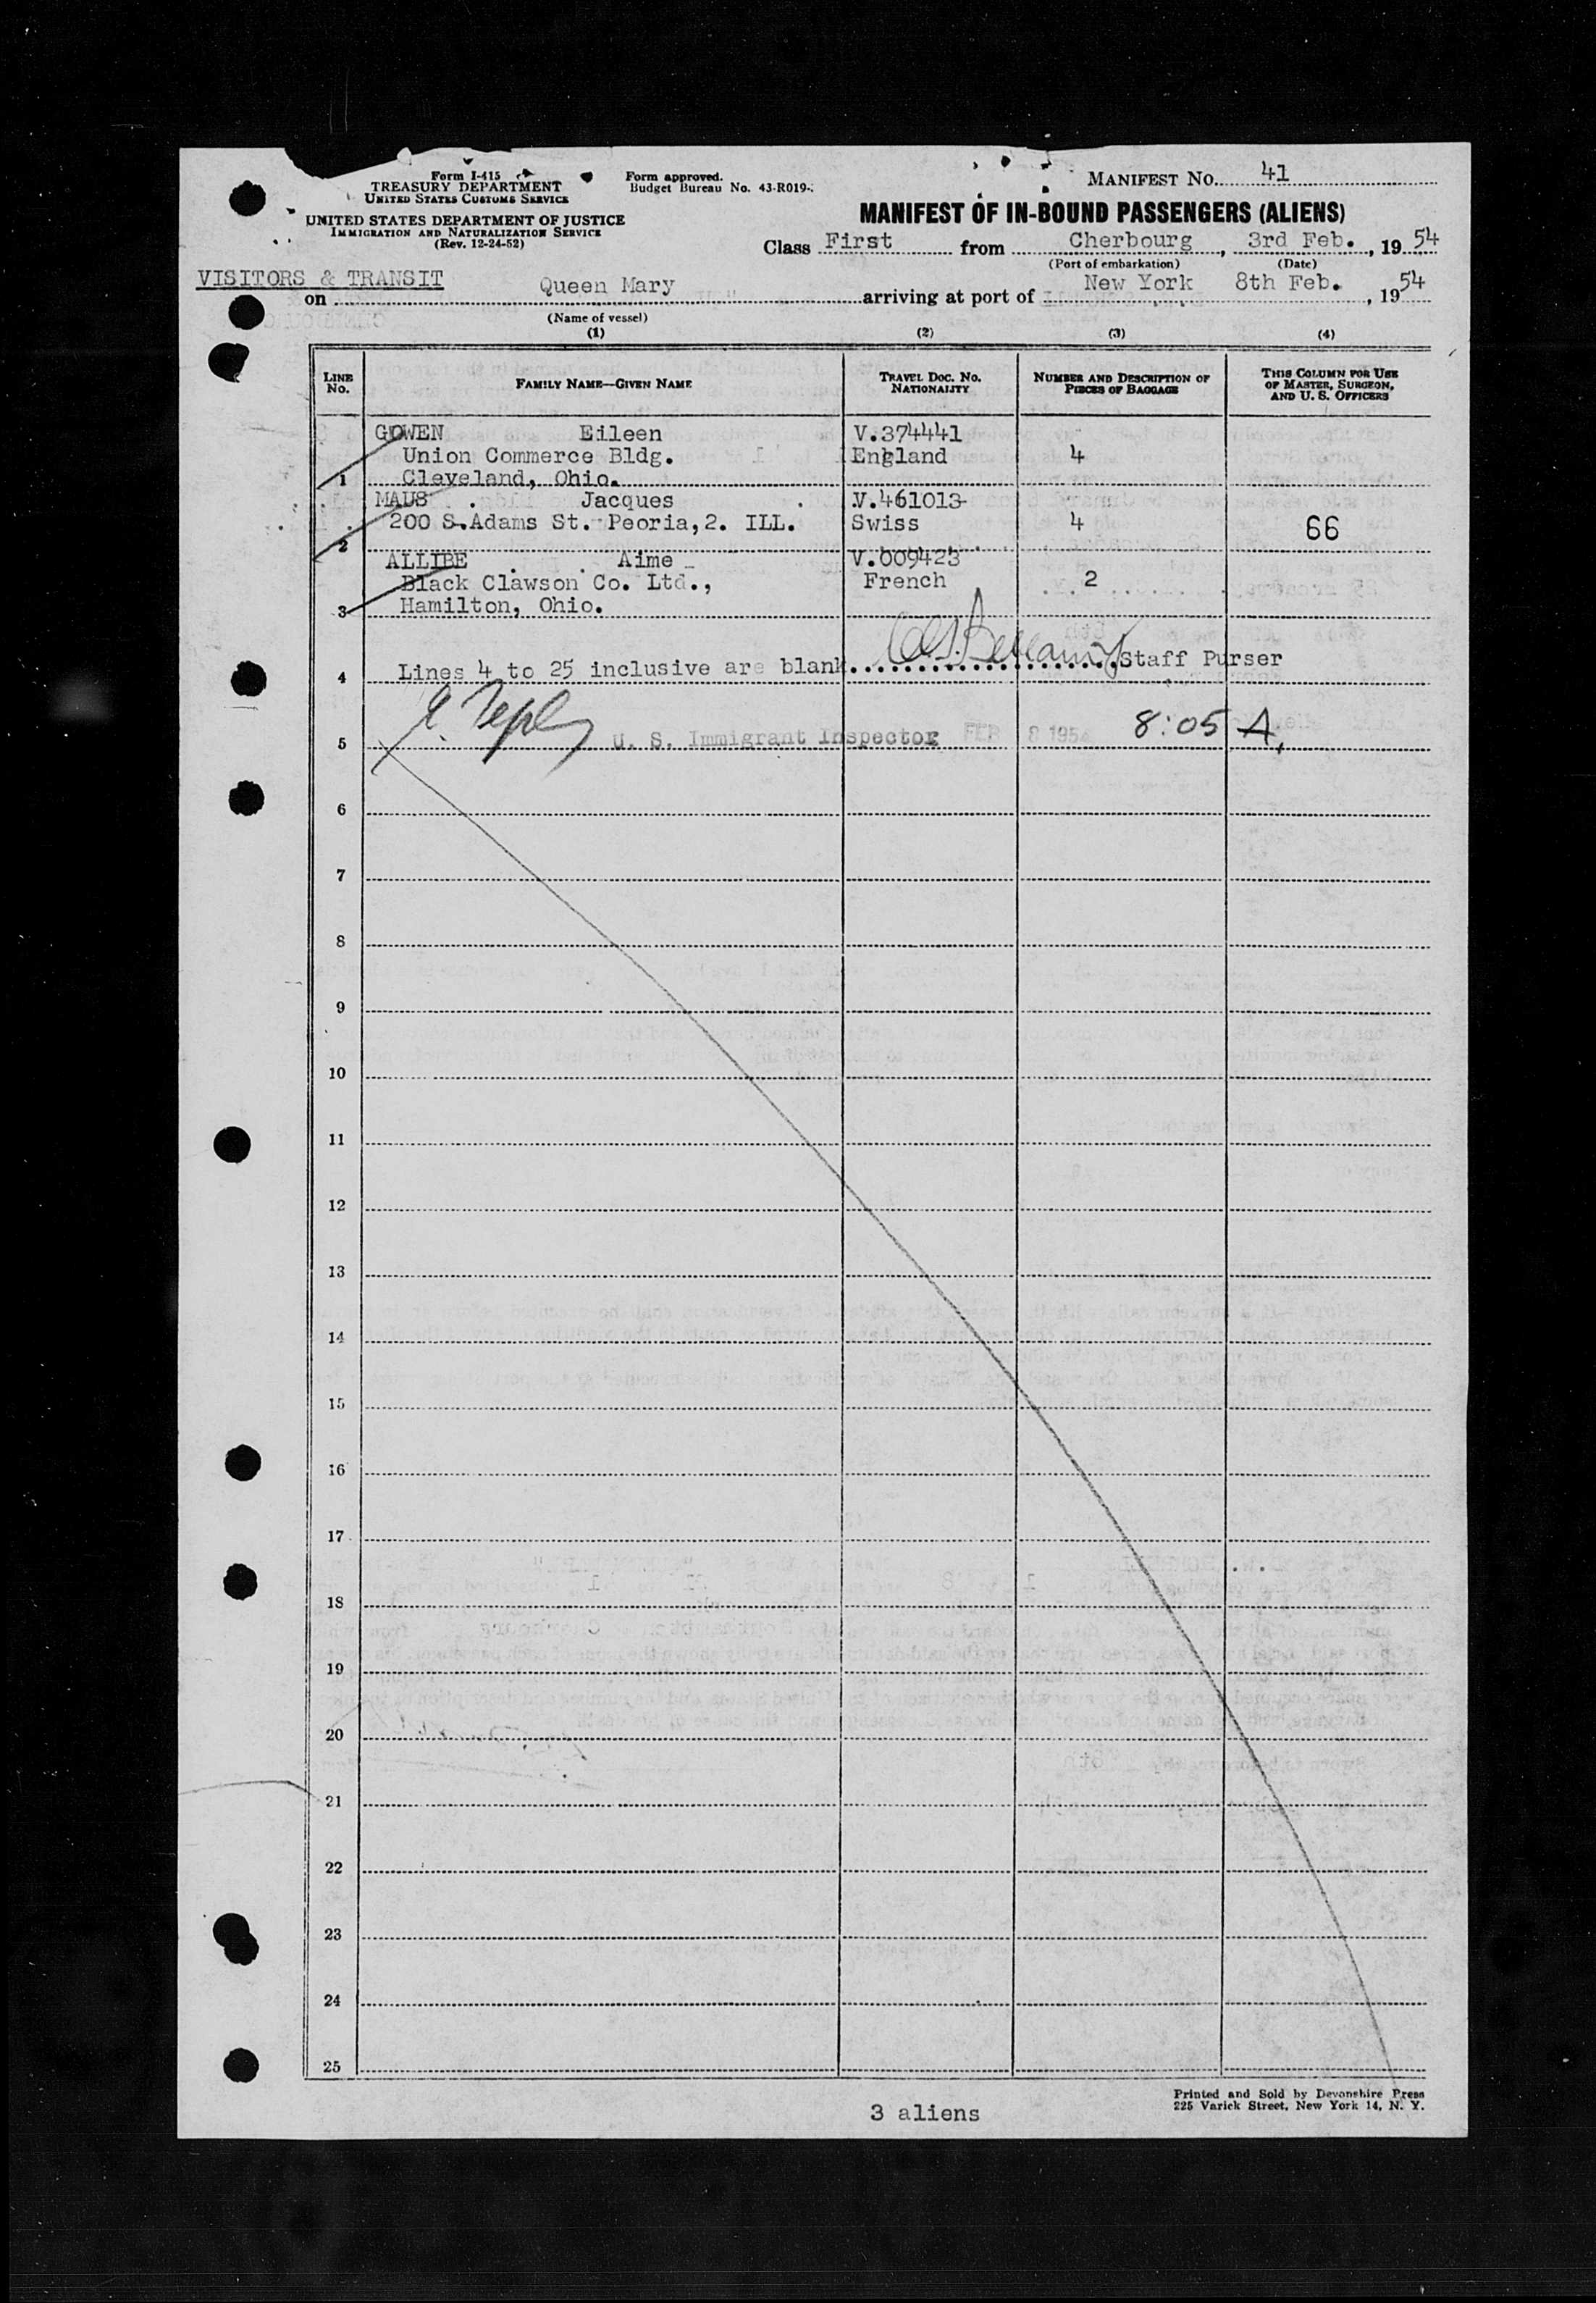 Form I-415
TREASURY DEPARTMENT
UNITED STATES CUSTOMS SERVICE
UNITED STATES DEPARTMENT OF JUSTICE
IMMIGRATION AND NATURALIZATION SERVICE
(Rev. 12-24-52)
Form approved.
Budget Bureau No. 43-R019-
MANIFEST NO. 41
MANIFEST OF IN-BOUND PASSENGERS (ALIENS)
Class First from Cherbourg, 3rd Feb., 1954
(Port of embarkation) (Date)
VISITORS & TRANSIT
on Queen Mary arriving at port of New York 8th Feb., 1954
(Name of vessel)
(1) (2) (3) (4)
LINE NO. FAMILY NAME—GIVEN NAME TRAVEL DOC. NO. NATIONALITY NUMBER AND DESCRIPTION OF PIECES OF BAGGAGE THIS COLUMN FOR USE OF MASTER, SURGEON, AND U. S. OFFICERS
GOWEN Eileen V.374441
Union Commerce Bldg. England 4
1 Cleveland, Ohio.
MAUS Jacques V.461013
200 S.Adams St. Peoria,2. ILL. Swiss 4 66
2
ALLIBE Aime V.009423
Black Clawson Co. Ltd., French 2
3 Hamilton, Ohio.
4 Lines 4 to 25 inclusive are blank. Staff Purser
5 U. S. Immigrant Inspector FEB 8 1954 8:05 A.
6
7
8
9
10
11
12
13
14
15
16
17
18
19
20
21
22
23
24
25
3 aliens
Printed and Sold by Devonshire Press
225 Varick Street, New York 14, N. Y.